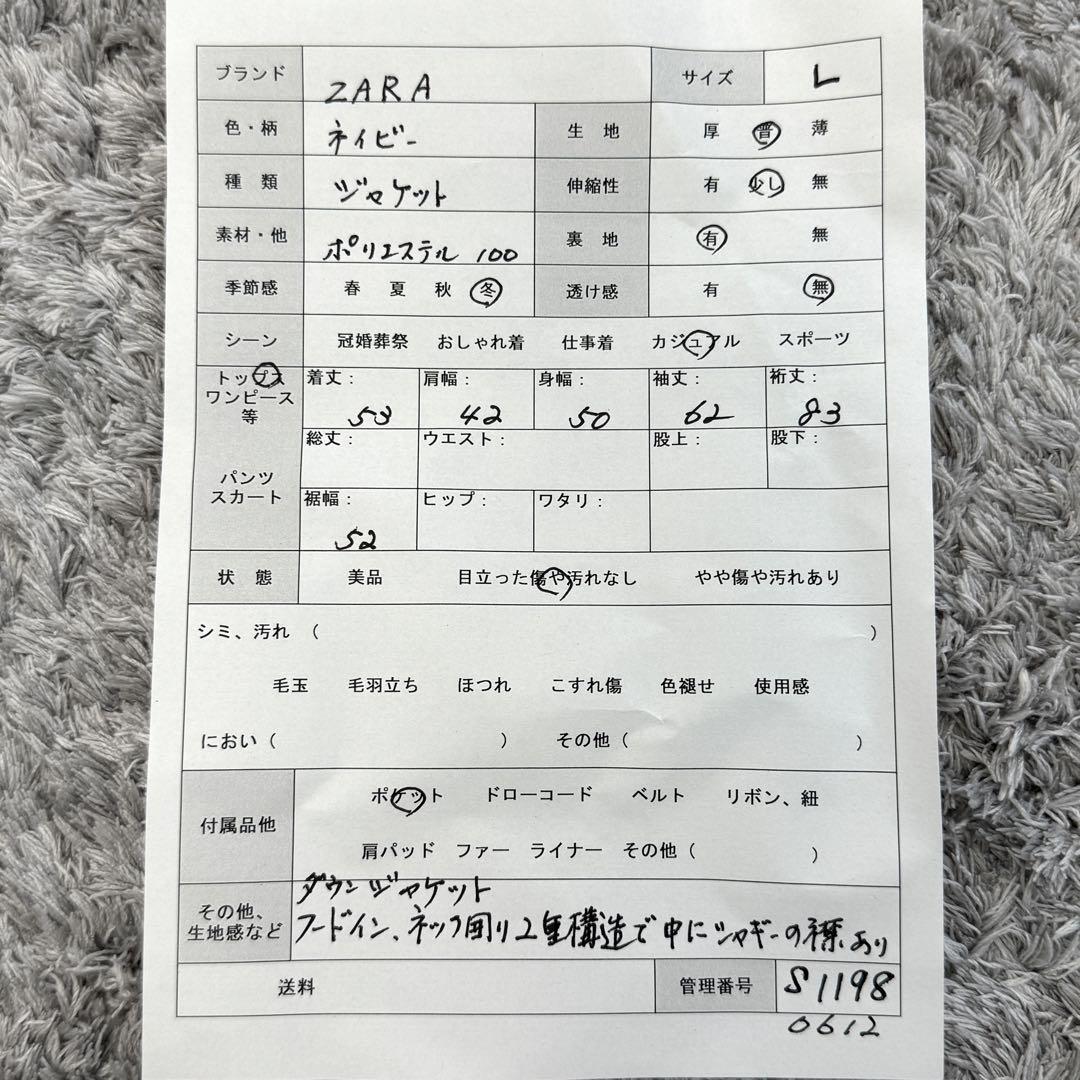 ブランド ZARA サイズ L
色・柄 ネイビー 生 地 厚 普 薄
種 類 ジャケット 伸縮性 有 少し 無
素材・他 ポリエステル 100 裏 地 有 無
季節感 春 夏 秋 冬 透け感 有 無
シーン 冠婚葬祭 おしゃれ着 仕事着 カジュアル スポーツ
トップス 着丈: 肩幅: 身幅: 袖丈: 裄丈:
ワンピース
等 53 42 50 62 83
総丈: ウエスト: 股上: 股下:
パンツ
スカート 裾幅: ヒップ: ワタリ:
52
状 態 美品 目立った傷や汚れなし やや傷や汚れあり
シミ、汚れ ( )
毛玉 毛羽立ち ほつれ こすれ傷 色褪せ 使用感
におい ( ) その他 ( )
付属品他 ポケット ドローコード ベルト リボン、紐
肩パッド ファー ライナー その他 ( )
ダウンジャケット
その他、
生地感など フードイン、ネック周り2重構造で中にシャギーの襟あり
送料 管理番号 S1198
0612